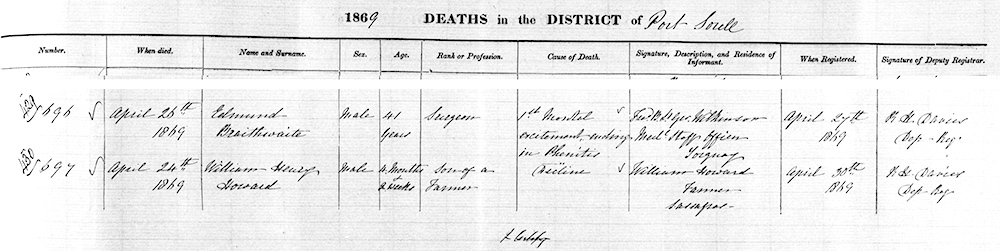 1869 DEATHS in the DISTRICT of Port Sorell
Number. When died. Name and Surname. Sex. Age. Rank or Profession. Cause of Death. Signature, Description, and Residence of Informant. When Registered. Signature of Deputy Registrar.
696 April 26th 1869 Edmund Braithwaite Male 41 years Surgeon 1st Mental excitement ending in Phrenitis Wilkinson Medl Staff Officer Torquay April 27th 1869 Davies Dep-Reg
697 April 24th 1869 William Henry Howard Male 4 Months 2 weeks Son of a Farmer Decline William Howard Farmer Sassafras April 30th 1869 Davies Dep-Reg